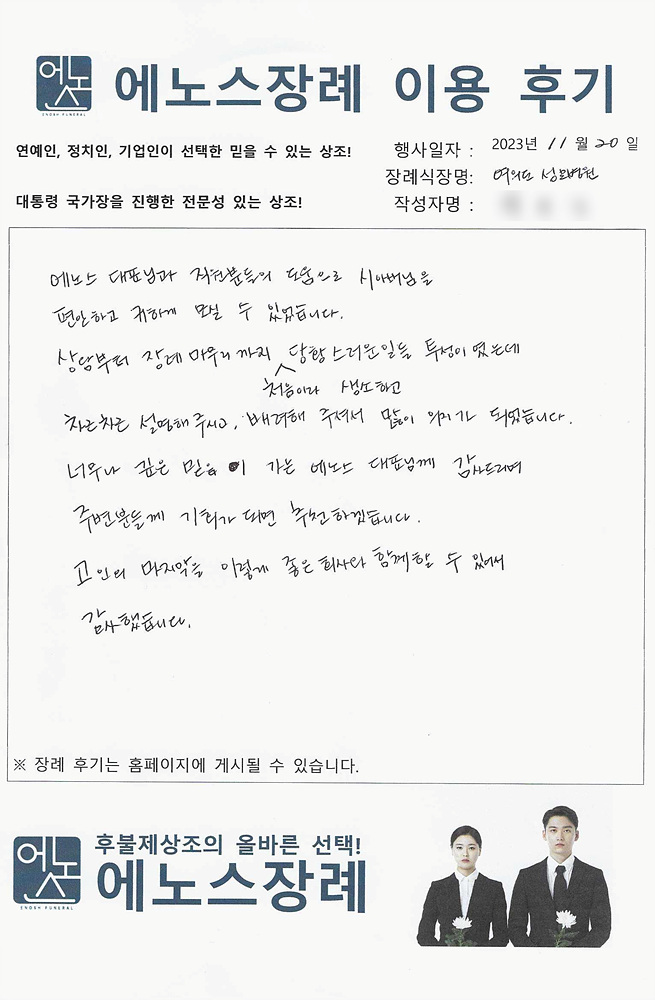 에노스
ENOSH FUNERAL
에노스장례 이용 후기
연예인, 정치인, 기업인이 선택한 믿을 수 있는 상조!
대통령 국가장을 진행한 전문성 있는 상조!
행사일자 : 2023년 11 월 20 일
장례식장명: 여의도 성모병원
작성자명 :
에노스 대표님과 직원분들의 도움으로 시아버님을
편안하고 귀하게 모실 수 있었습니다.
상담부터 장례 마무리까지 당황스러운일들 투성이였는데
처음이라 생소하고
차근차근 설명해주시고, 배려해 주셔서 많이 의지가 되었습니다.
너무나 깊은 믿음이 가는 에노스 대표님께 감사드리며
주변분들께 기회가 되면 추천하겠습니다.
고인의 마지막을 이렇게 좋은 회사와 함께할 수 있어서
감사했습니다.
※ 장례 후기는 홈페이지에 게시될 수 있습니다.
에노스
ENOSH FUNERAL
후불제상조의 올바른 선택!
에노스장례